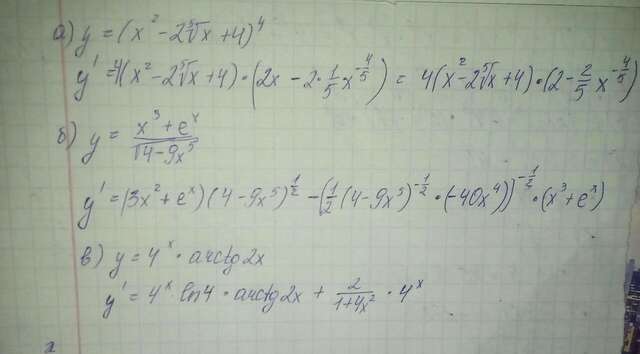 а) y = (x² - 2⁵√x + 4)⁴
y' = 4(x² - 2⁵√x + 4) · (2x - 2 · 1/5 x^(-4/5)) = 4(x² - 2⁵√x + 4) · (2 - 2/5 x^(-4/5))
б) y = (x³ + eˣ)/√(4 - 9x⁵)
y' = (3x² + eˣ)(4 - 9x⁵)^(1/2) - (1/2 (4 - 9x⁵)^(-1/2) · (-40x⁴))^(-1/2) · (x³ + eˣ)
в) y = 4ˣ · arctg 2x
y' = 4ˣ · ln4 · arctg 2x + 2/(1+4x²) · 4ˣ